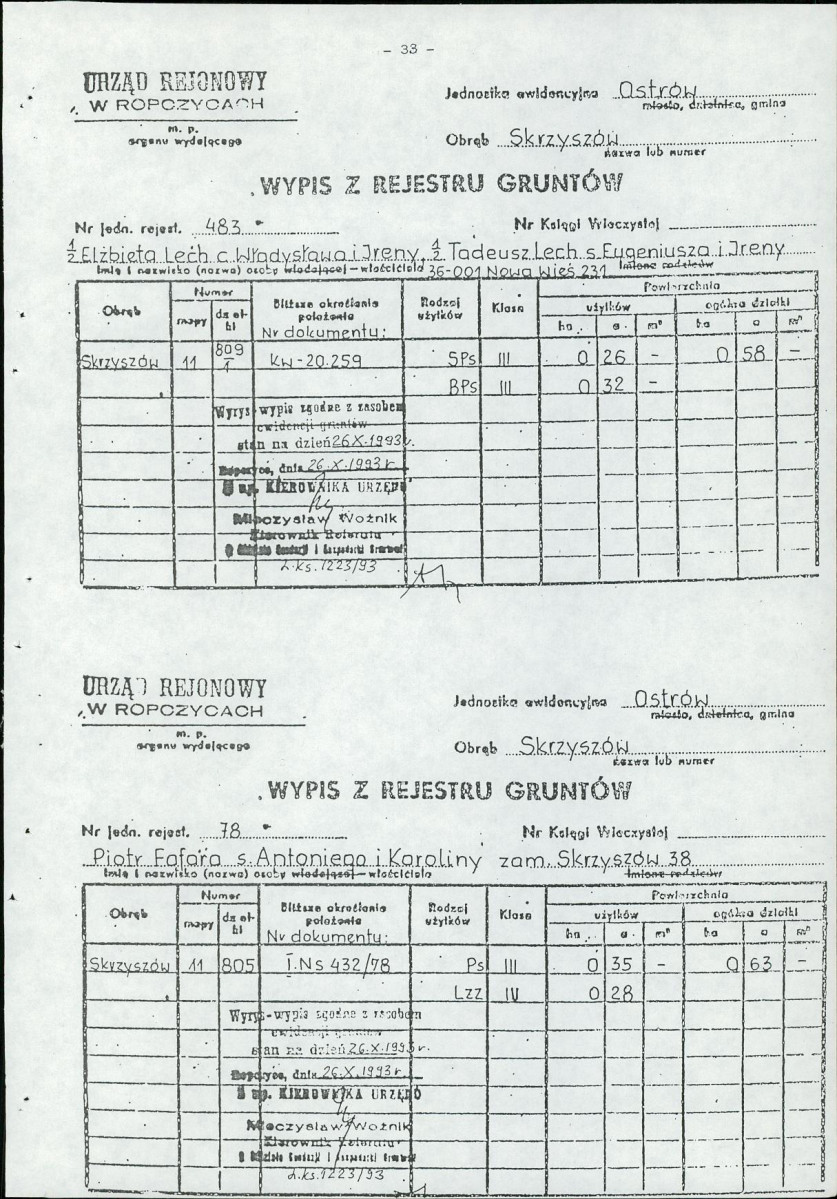 - 33 -
URZĄD REJONOWY
W ROPCZYCACH
m. p.
organu wydającego
Jednostka ewidencyjna Ostrów
miasto, dzielnica, gmina
Obręb Skrzyszów
nazwa lub numer
WYPIS Z REJESTRU GRUNTÓW
Nr jedn. rejest. 483
Nr Księgi Wieczystej
1/2 Elżbieta Lech c. Władysława i Ireny, 1/2 Tadeusz Lech s. Eugeniusza i Ireny
Imię i nazwisko (nazwa) osoby władającej – właściciela 36-001 Nowa Wieś 231 Imiona rodziców
Obręb Numer mapy działki Bliższe określenie położenia Nr dokumentu: Rodzaj użytków Klasa Powierzchnia użytków ha a m² ogólna działki ha a m²
Skrzyszów 11 809/1 Kw-20.259 SPs III 0 26 - 0 58 -
BPs III 0 32 -
Wyrys-wypis zgodne z zasobem
ewidencji gruntów
stan na dzień 26.X.1993r.
Ropczyce, dnia 26.X.1993r.
Z up. KIEROWNIKA URZĘDU
Mieczysław Woźnik
Kierownik Referatu
L.ks.1223/93
URZĄD REJONOWY
W ROPCZYCACH
m. p.
organu wydającego
Jednostka ewidencyjna Ostrów
miasto, dzielnica, gmina
Obręb Skrzyszów
nazwa lub numer
WYPIS Z REJESTRU GRUNTÓW
Nr jedn. rejest. 78
Nr Księgi Wieczystej
Piotr Fafara s. Antoniego i Karoliny zam. Skrzyszów 38
Imię i nazwisko (nazwa) osoby władającej – właściciela Imiona rodziców
Obręb Numer mapy działki Bliższe określenie położenia Nr dokumentu: Rodzaj użytków Klasa Powierzchnia użytków ha a m² ogólna działki ha a m²
Skrzyszów 11 805 I.Ns 432/78 Ps III 0 35 - 0 63 -
Lzz IV 0 28
Wyrys-wypis zgodne z zasobem
ewidencji gruntów
stan na dzień 26.X.1993r.
Ropczyce, dnia 26.X.1993r.
Z up. KIEROWNIKA URZĘDU
Mieczysław Woźnik
Kierownik Referatu
L.ks.1223/93